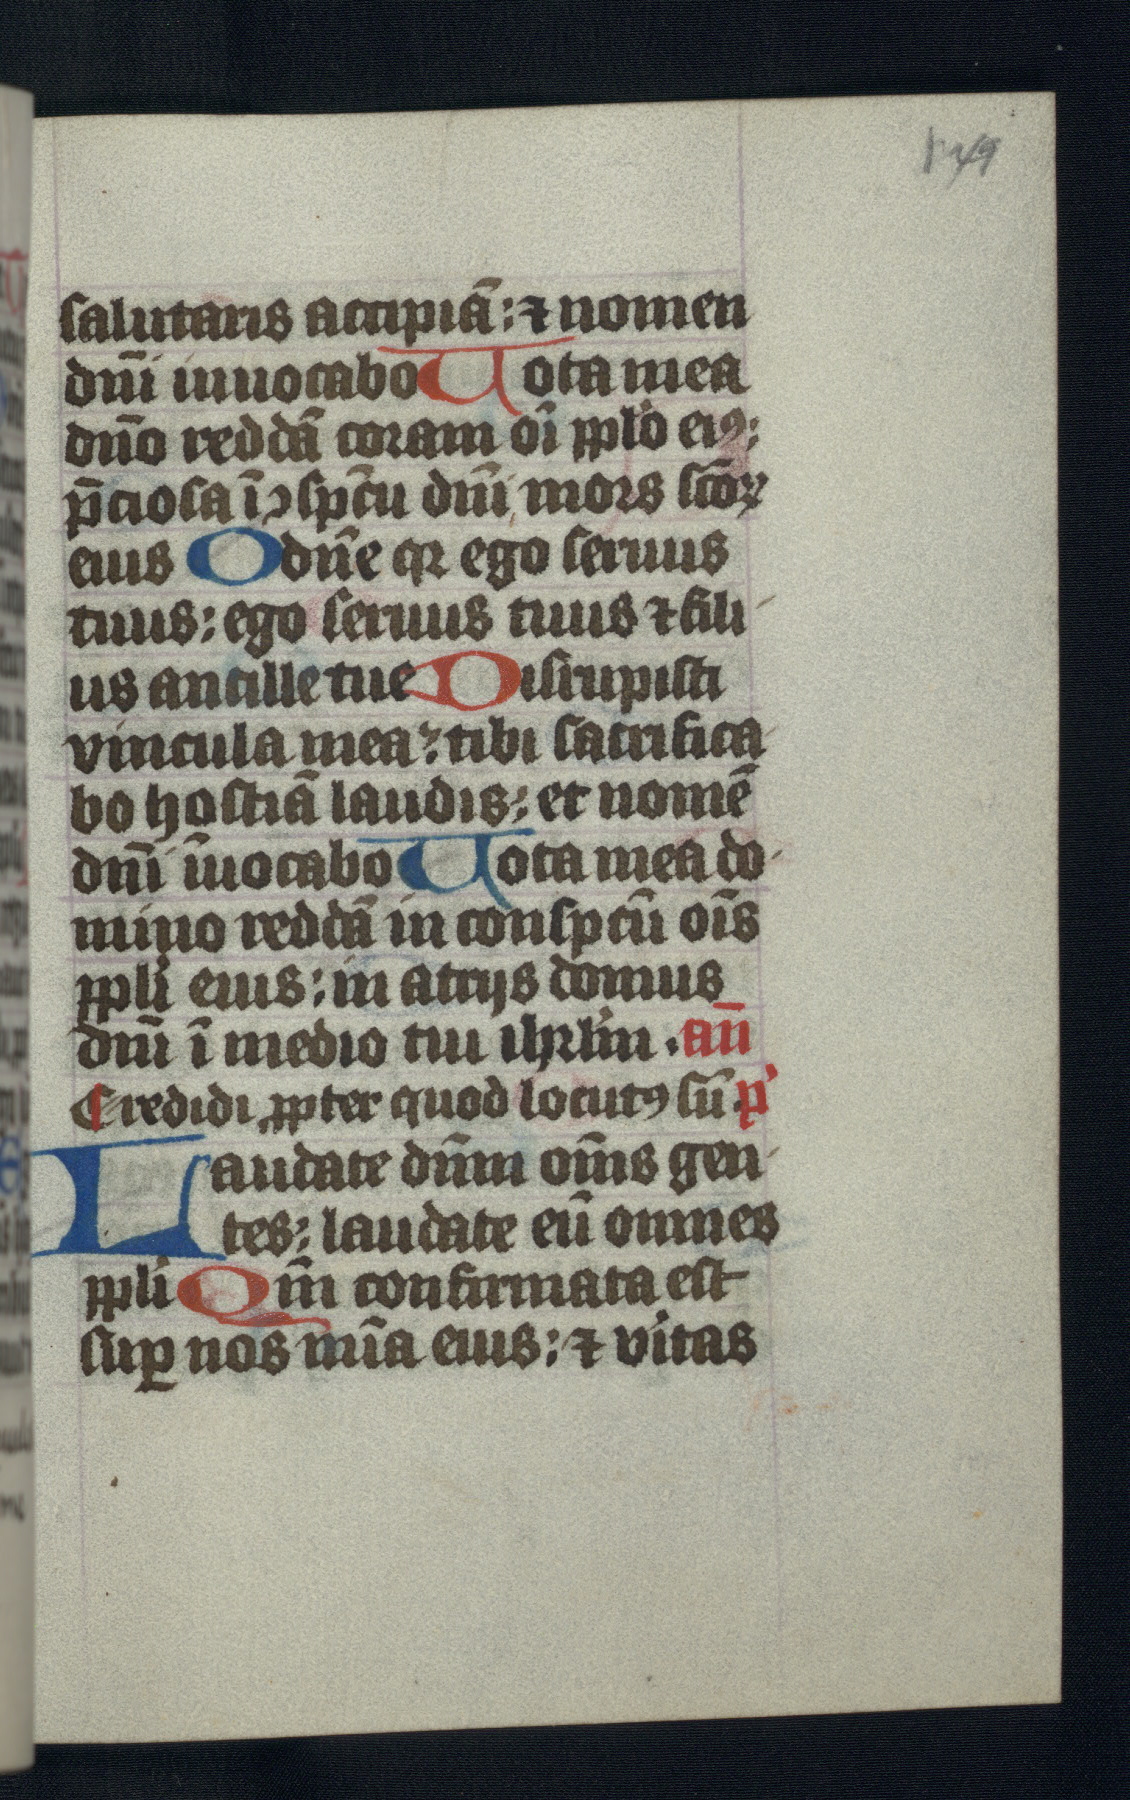 149
salutaris accipiā : ⁊ nomen
dn̄i inuocabo Uota mea
dn̄o reddā coram oī ꝓplo eiꝰ :
p̄ciosa ī ↄspc̄u dn̄i mors sc̄oꝝ
eius O dn̄e qꝛ ego seruus
tuus : ego seruus tuus ⁊ fili
us ancille tue Disrupisti
vincula mea : tibi sacrifica
bo hostiā laudis : et nomē
dn̄i īuocabo Uota mea do
mino reddā in conspcū oīs
ppli eius : in atrijs domus
dn̄i ī medio tui ihrlm̄ . an̄
Credidi ꝓpter quod locutꝰ sū . p̄
Laudate dn̄m om̄s gen
tes : laudate eū omnes
ppli Qm̄ confirmata est
suꝑ nos mīa eius : ⁊ vitas